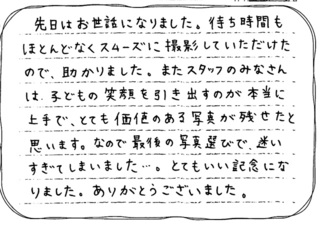 先日はお世話になりました。待ち時間も
ほとんどなくスムーズに撮影していただけた
ので、助かりました。またスタッフのみなさん
は、子どもの笑顔を引き出すのが本当に
上手で、とても価値のある写真が残せたと
思います。なので最後の写真選びで、迷い
すぎてしまいました…。とてもいい記念にな
りました。ありがとうございました。